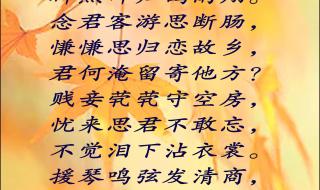 念君客游思断肠，
慊慊思归恋故乡，
君何淹留寄他方？
贱妾茕茕守空房，
忧来思君不敢忘，
不觉泪下沾衣裳。
援琴鸣弦发清商，